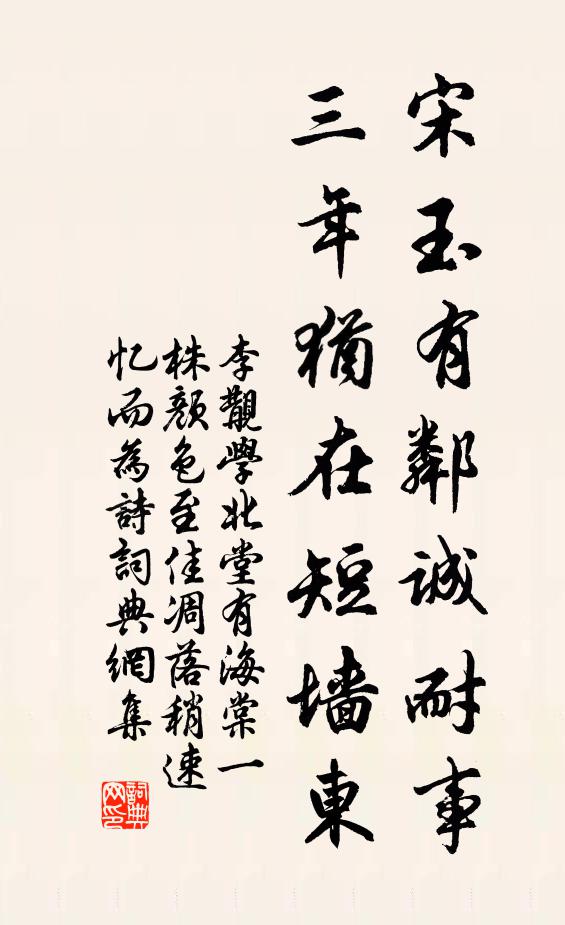 宋玉有鄰诚耐事
三年猶在短墙東
李覯學北堂有海棠一
株颜色至佳凋落稍速
忆而為詩詞典網集
詞典网印